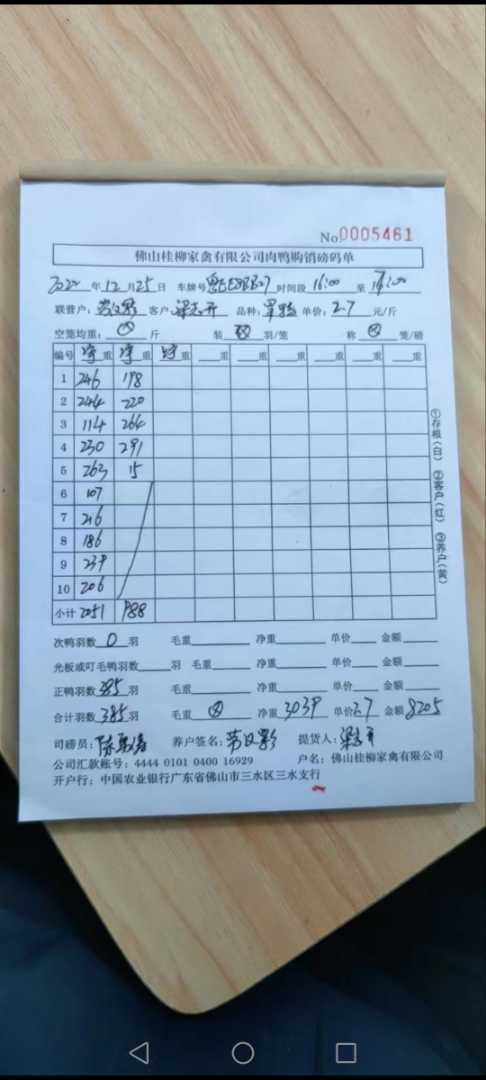 No.0005461
佛山桂柳家禽有限公司肉鸭购销磅码单
年12月25日 车牌号 时间段 16:00 至
联营户: 客户 品种: 单价: 2.7 元/斤
空笼均重: 斤 装 羽/笼 称 笼/磅
编号 净重 净重 重 重 重 重 重 重 重
1 246 198
2 244 220
3 114 264
4 230 291
5 263 15
6 107
7 216
8 186
9 239
10 206
小计 2051 988
①存根(白) ②客户(红) ③养户(黄)
次鸭羽数 0 羽 毛重 净重 单价 金额
光板或叮毛鸭羽数 羽 毛重 净重 单价 金额
正鸭羽数 385 羽 毛重 净重 单价 金额
合计羽数 385 羽 毛重 净重 3039 单价 2.7 金额 8205
司磅员: 养户签名: 提货人:
公司汇款帐号: 4444 0101 0400 16929 户名: 佛山桂柳家禽有限公司
开户行: 中国农业银行广东省佛山市三水区三水支行